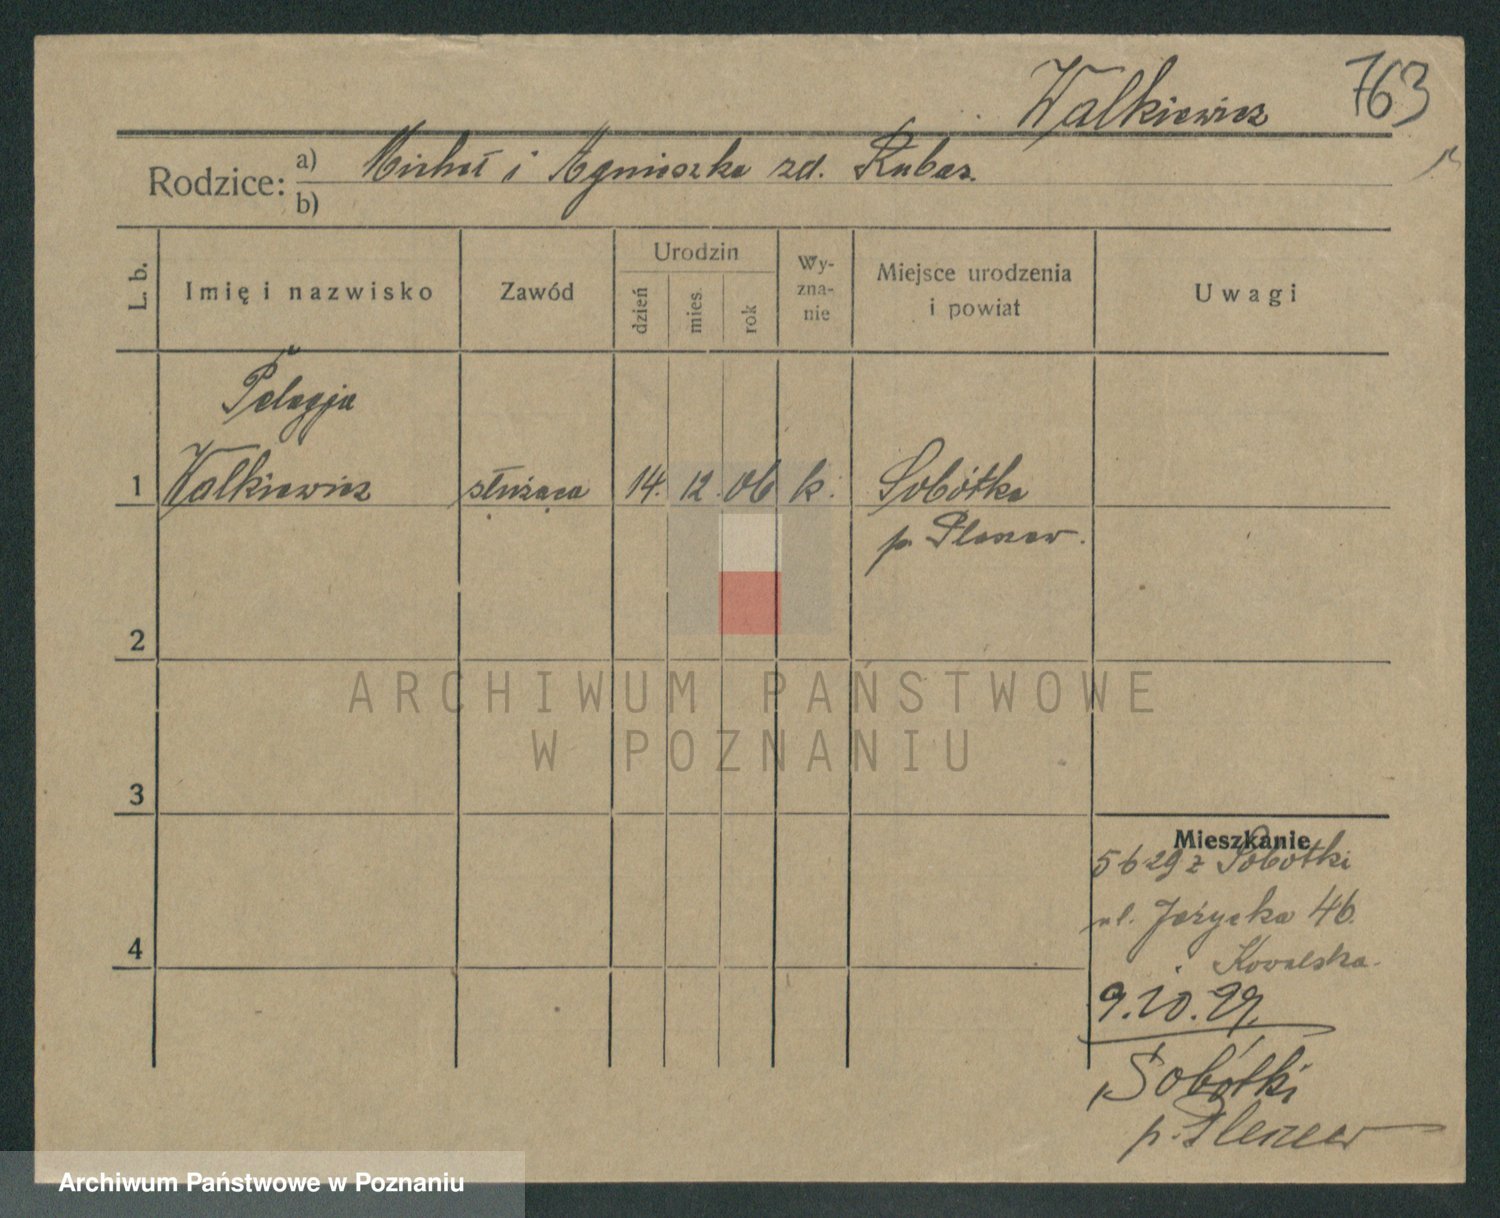 Walkiewicz 763
Rodzice: a) Michał i Agnieszka zd. Kubas
b)
L. b.
Imię i nazwisko
Zawód
Urodzin
dzień
mies.
rok
Wy-
zna-
nie
Miejsce urodzenia
i powiat
Uwagi
Pelagja
1 Walkiewicz służąca 14. 12. 06 k. Sobótka
p. Pleszew.
2
3
4
Mieszkanie
5 6 29 z Sobótki
ul. Jeżycka 46.
Kowalska.
9.10.29.
Sobótki
p. Pleszew
ARCHIWUM PAŃSTWOWE
W POZNANIU
Archiwum Państwowe w Poznaniu